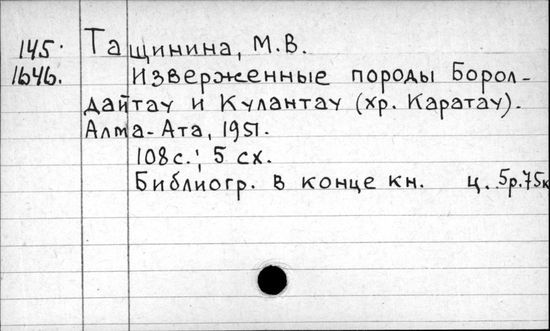 145. Тащинина, М.В.
1646. Изверженные породы Борол-
дайтау и Кулантау (хр. Каратау).
Алма-Ата, 1951.
108 с.; 5 сх.
Библиогр. в конце кн. ц. 5р.75к